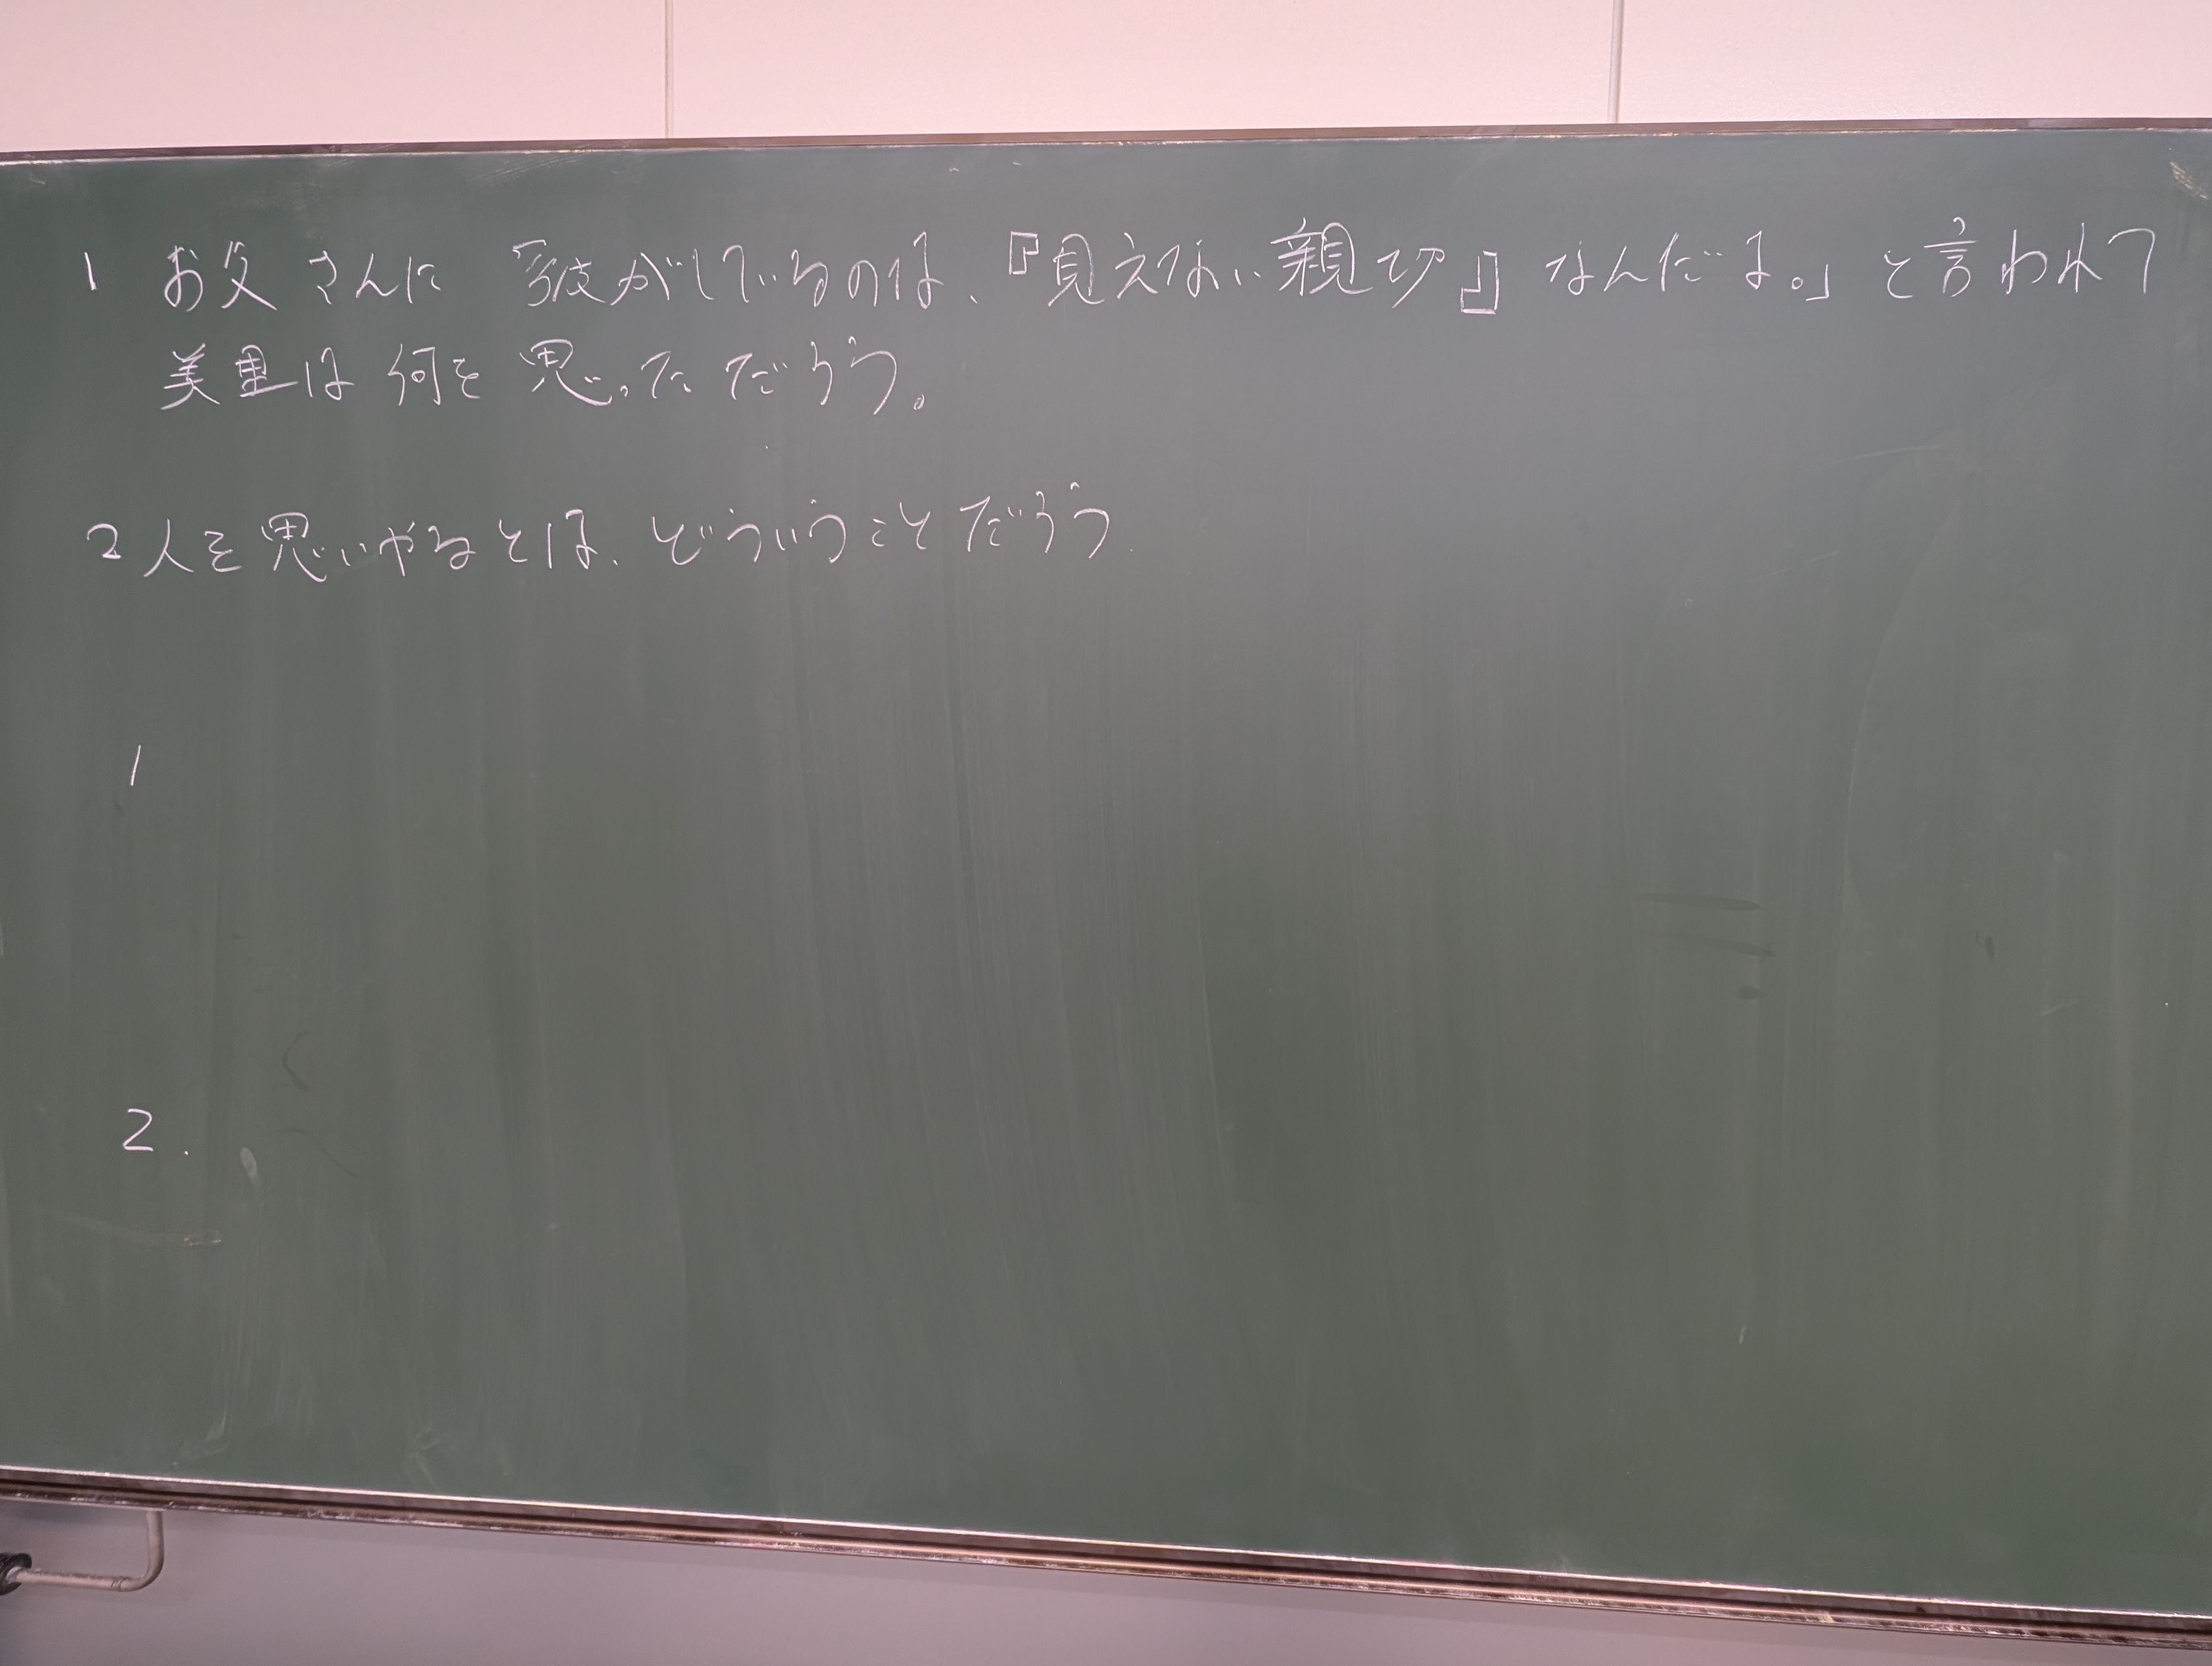 1 お父さんに「彼がしているのは、『見えない親切』なんだよ。」と言われて
美里は何を思っただろう。
2 人を思いやるとは、どういうことだろう
1
2.